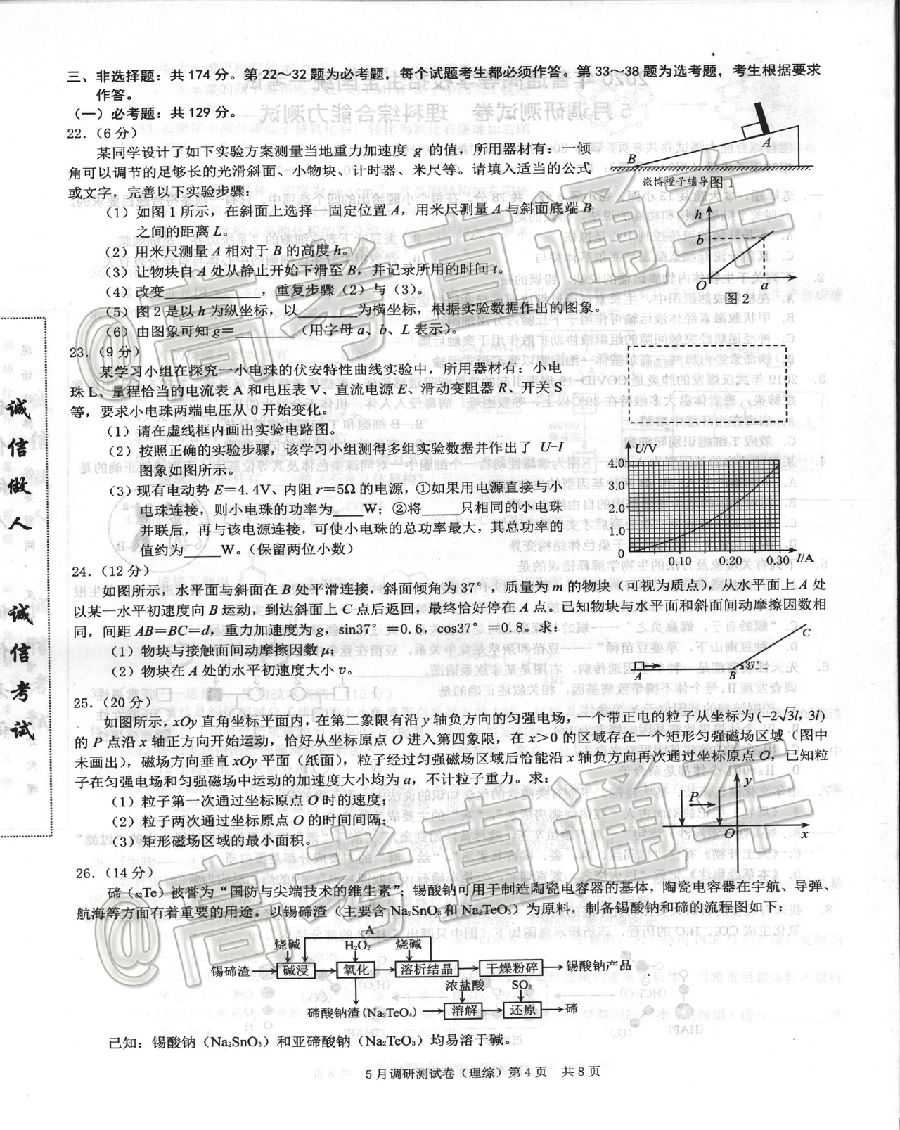 三、非选择题：共174分。第22～32题为必考题，每个试题考生都必须作答。第33～38题为选考题，考生根据要求
作答。
（一）必考题：共129分。
22.（6分）
某同学设计了如下实验方案测量当地重力加速度 g 的值，所用器材有：一倾
角可以调节的足够长的光滑斜面、小物块、计时器、米尺等。请填入适当的公式
或文字，完善以下实验步骤：
（1）如图1所示，在斜面上选择一固定位置A，用米尺测量A与斜面底端B
之间的距离L。
（2）用米尺测量A相对于B的高度h。
（3）让物块自A处从静止开始下滑至B，并记录所用的时间t。
（4）改变________，重复步骤（2）与（3）。
（5）图2是以h为纵坐标，以______为横坐标，根据实验数据作出的图象。
（6）由图象可知g=______（用字母a、b、L表示）。
A
B
图1
h
b
O
a
图2
23.（9分）
某学习小组在探究一小电珠的伏安特性曲线实验中，所用器材有：小电
珠L、量程恰当的电流表A和电压表V、直流电源E、滑动变阻器R、开关S
等，要求小电珠两端电压从0开始变化。
（1）请在虚线框内画出实验电路图。
（2）按照正确的实验步骤，该学习小组测得多组实验数据并作出了 U-I
图象如图所示。
（3）现有电动势E=4.4V、内阻r=5Ω的电源，①如果用电源直接与小
电珠连接，则小电珠的功率为____W；②将____只相同的小电珠
并联后，再与该电源连接，可使小电珠的总功率最大，其总功率的
值约为____W。（保留两位小数）
U/V
4.0
3.0
2.0
1.0
0
0.10 0.20 0.30 I/A
24.（12分）
如图所示，水平面与斜面在B处平滑连接，斜面倾角为37°，质量为m的物块（可视为质点），从水平面上A处
以某一水平初速度向B运动，到达斜面上C点后返回，最终恰好停在A点。已知物块与水平面和斜面间动摩擦因数相
同，间距AB=BC=d，重力加速度为g，sin37°=0.6，cos37°=0.8。求：
（1）物块与接触面间动摩擦因数μ；
（2）物块在A处的水平初速度大小v。
A
B
37°
C
25.（20分）
如图所示，xOy直角坐标平面内，在第二象限有沿y轴负方向的匀强电场，一个带正电的粒子从坐标为(-2√3l, 3l)
的P点沿x轴正方向开始运动，恰好从坐标原点O进入第四象限，在x>0的区域存在一个矩形匀强磁场区域（图中
未画出），磁场方向垂直xOy平面（纸面），粒子经过匀强磁场区域后恰能沿x轴负方向再次通过坐标原点O，已知粒
子在匀强电场和匀强磁场中运动的加速度大小均为a，不计粒子重力。求：
（1）粒子第一次通过坐标原点O时的速度；
（2）粒子两次通过坐标原点O的时间间隔；
（3）矩形磁场区域的最小面积。
y
P
O
x
26.（14分）
碲（₅₂Te）被誉为“国防与尖端技术的维生素”；锡酸钠可用于制造陶瓷电容器的基体，陶瓷电容器在宇航、导弹、
航海等方面有着重要的用途。以锡碲渣（主要含Na₂SnO₃和Na₂TeO₃）为原料，制备锡酸钠和碲的流程图如下：
A
烧碱 H₂O₂ 烧碱
锡碲渣 碱浸 氧化 溶析结晶 干燥粉碎 锡酸钠产品
浓盐酸 SO₂
碲酸钠渣（Na₂TeO₄） 溶解 还原 碲
已知：锡酸钠（Na₂SnO₃）和亚碲酸钠（Na₂TeO₃）均易溶于碱。
5月调研测试卷（理综）第4页 共8页
诚信做人 诚信考试
@高考直通车
@高考直通车